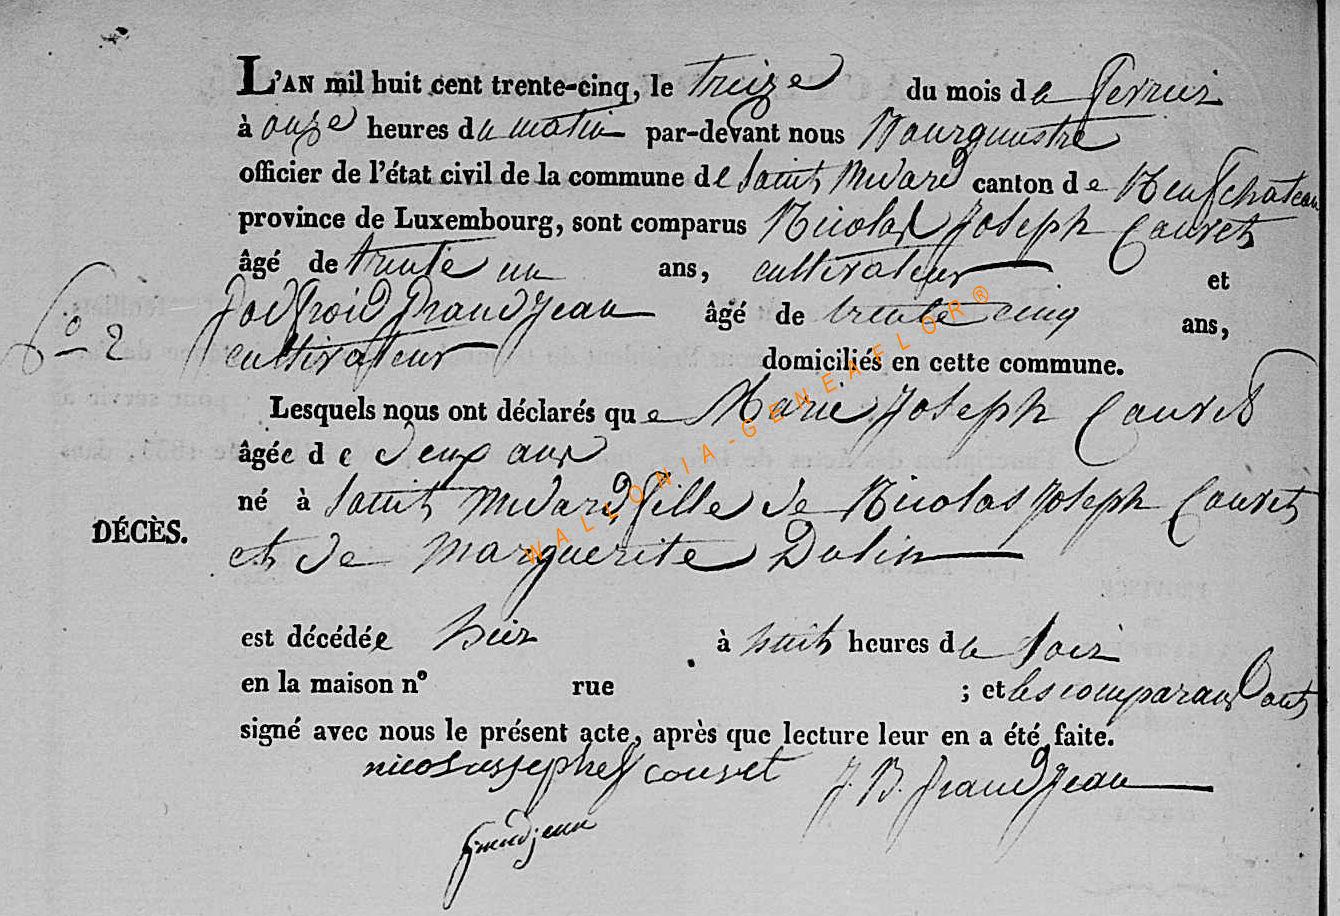 L'AN mil huit cent trente-cinq, le treize du mois de fevrier
à onze heures du matin par-devant nous Bourguestre
officier de l'état civil de la commune de Saint Medard canton de Neufchateau
province de Luxembourg, sont comparus Nicolas Joseph Couvet
âgé de trente un ans, cultivateur et
Godfroid Grandjean âgé de trente cinq ans,
f° 2
cultivateur domiciliés en cette commune.
Lesquels nous ont déclarés que Marie Joseph Couvet
âgée de deux ans
né à Saint Medard fille de Nicolas Joseph Couvet
DÉCÈS.
et de Marguerite Dolin
est décédée hier à huit heures du Soir
en la maison n° rue ; et les comparans ont
signé avec nous le présent acte, après que lecture leur en a été faite.
nicolas josephe couvet J. B. Grandjean
Grandjean
WALLONIA-GENEAFLOR®